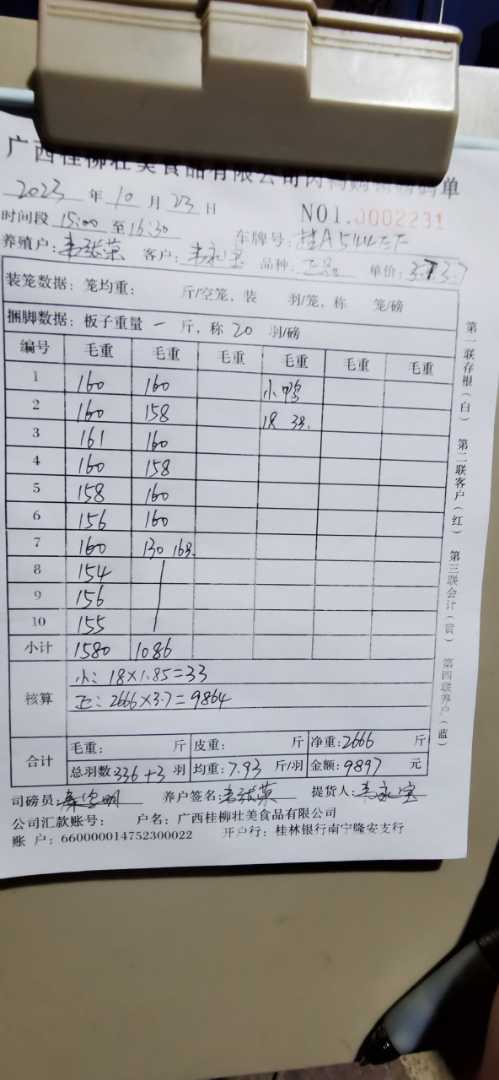 广西桂柳壮美食品有限公司 单
2023 年 10 月 23 日 NO1.0002231
时间段 15:00 至 16:30 车牌号: 桂A
养殖户: 客户: 品种: 正品 单价: 3.7
装笼数据: 笼均重: 斤/空笼, 装 羽/笼, 称 笼/磅
捆脚数据: 板子重量 一 斤, 称 20 羽/磅
编号 毛重 毛重 毛重 毛重 毛重 毛重
1 160 160 小鸭
2 160 158 18 33.
3 161 160
4 160 158
5 158 160
6 156 160
7 160 130 163.
8 154
9 156
10 155
小计 1580 1086
核算 小: 18×1.85=33
正: 2666×3.7=9864
合计 毛重: 斤 皮重: 斤 净重: 2666 斤
总羽数 336+3 羽 均重: 7.93 斤/羽 金额: 9897 元
司磅员: 养户签名: 提货人:
公司汇款账号: 户名: 广西桂柳壮美食品有限公司
账 户: 660000014752300022 开户行: 桂林银行南宁隆安支行
第一联存根(白) 第二联客户(红) 第三联会计(黄) 第四联养户(蓝)